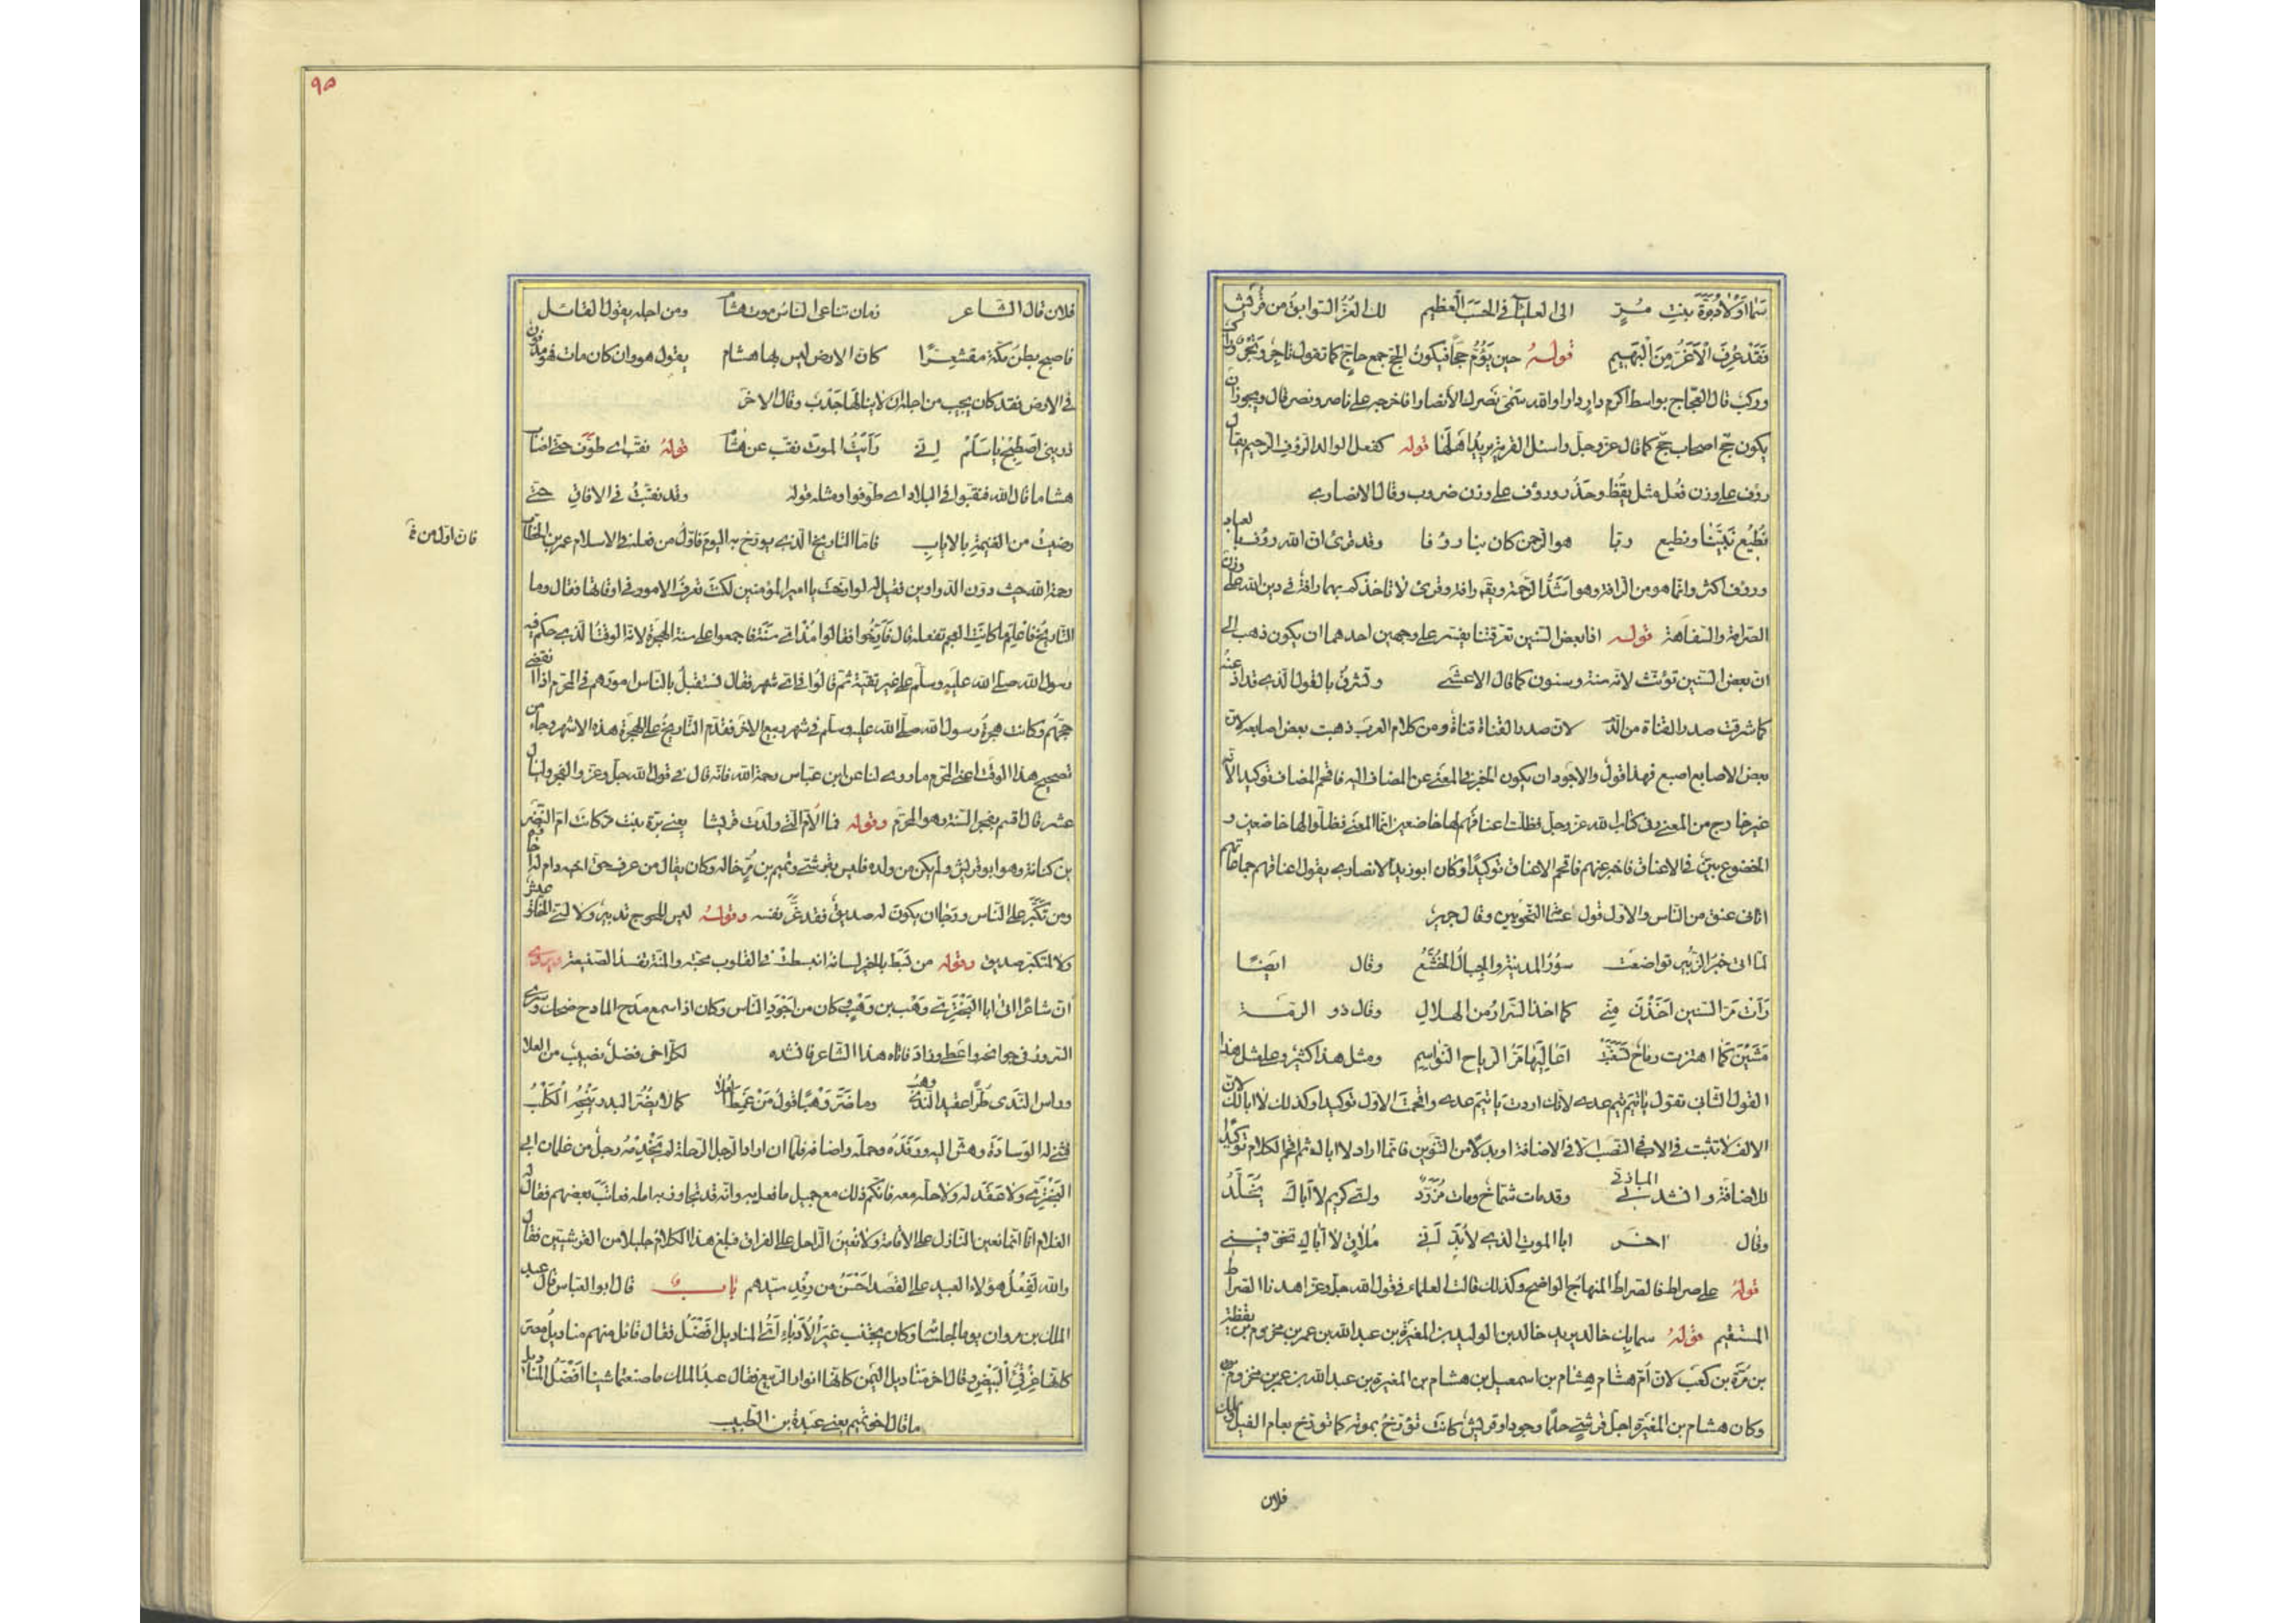 سما اولاد برة بنت مُرٍّ الى العلياء في الحسب العظيم لك الغرُّ السوابقُ من قُريش
فقد عُرِفَ الاَغرُّ مِنَ الْبَهِيمِ قولهُ حين يَؤُمُّ حجاً فيكونُ الحج جمع حاج كما تقول تاجر وتجر وراكب
وركب قال العجاج بواسط اكرم دار دارا والله سمّى نصرك الانصارا فاخرجه على ناصر ونصر قال ويجوز ان
يكون حج اصحاب حج كما قال عز وجل واسئل القرية يريد اهلها قوله كفعل الوالد الرؤف الرحيم يقال
رؤف على وزن فَعُل مثل يَقُظ وحَذُر ورؤف على وزن ضروب وقال الانصاري
نُطيع نَبيَّنا ونطيع ربا هو الرحمن كان بنا رؤفا وقد قرئ ان الله رؤف بالعباد
ورؤف اكثر وانما هو من الرافة وهو اشدُّ الرحمة ويقال رافة وقرئ لا تاخذكم بهما رافة في دين الله على وزن
الصرامة والسفاهة قوله اذا بعض السنين تعرقتنا يفسر على وجهين احدهما ان يكون ذهب الى
ان بعض السنين تؤنث لانه سنة وسنون كما قال الاعشى وتشرقُ بالقول الذي قد اذعتَه
كما شرقت صدر القناة من الدم لان صدر القناة قناة ومن كلام العرب ذهبت بعض اصابعه لان
بعض الاصابع اصبع فهذا قولٌ والاجود ان يكون الخبر في المعنى عن المضاف اليه فاقحم المضاف توكيدا لانه
غير خارج من المعنى وفي كتاب الله عز وجل فظلت اعناقهم لها خاضعين انما المعنى فظلوا لها خاضعين و
الخضوع بيّن في الاعناق فاخبر عنهم فاقحم الاعناق توكيدًا وكان ابو زيد الانصاري يقول اعناقهم جماعاتهم
اتانى عنق من الناس والاول قول عامة النحويين وقال جرير
لما اتى خبر الزبير تواضعت سُورُ المدينة والجبالُ الخُشّعُ وقال ايضًا
رَأت مَرّ السنين اَخَذْنَ مِنّي كما اخذ السَّرارُ من الهلالِ وقال ذو الرمّة
مَشَيْنَ كما اهتزت رماحٌ تَسَفَّهَتْ اَعَاليَها مَرُّ الرياح النواسِم ومثل هذا كثير وعلى مثل هذا
القول الثاني تقول يا تيم تيم عدي لانك اردت يا تيم عدي واقحمت الاول توكيدا وكذلك لا ابا لك لان
الالف لا تثبت في الاب في النصب الا في الاضافة او بدلًا من التنوين فانما اراد لا اباك ثم اقحم اللام توكيدًا
للاضافة وانشدني المازنيّ وقد مات شمّاخٌ ومات مُزَرِّدٌ واي كريم لا اَباكَ يُخَلَّدُ
وقال اخر ابا الموت الذي لا بُدّ اَنّي مُلاقٍ لا اَباكِ تخوّفينى
قولهُ على صراط فالصراطُ المنهاج الواضح وكذلك قالت العلماء في قول الله جلّ وعز اهدنا الصراط
المستقيم قولهُ سما بك خالد يريد خالد بن الوليد بن المغيرة بن عبد الله بن عمر بن مخزوم بن يقظة
بن مُرّة بن كعب لان اُمّ هشام هِشام بن اسمعيل بن هشام بن المغيرة بن عبد الله بن عمر بن مخزوم
وكان هشام بن المغيرة اجلّ قرشيّ حلمًا وجودا وقريشٌ كانت تؤرّخُ بموته كما تؤرّخ بعام الفيل وبملك
فلان
٩٥
فلان قال الشاعر زمان تناعى الناسُ موت هشام ومن اجله يقول القائل
فاصبح بطنُ مكّة مقشعِرًّا كان الارض ليس بها هشام يقول هو وان كان مات فهو مدفون
في الارض فقد كان يجب من اجله ان لا ينالها جَدْبٌ وقال الاخر
ذريني اَصْطَبِحْ يا سَلْمُ اِنّي رَاَيْتُ الموتَ نقّب عن هشام قولهُ نقّب اي طوَّفَ حتى اصاب
هشاما قال الله فنقّبوا في البلاد اي طوّفوا ومثله قوله وقد نقّبتُ في الافاقِ حتّى
رضيتُ من الغنيمةِ بالايابِ فاما التاريخُ الذي يورّخ به اليومَ فاوّلُ من فعله في الاسلام عمر بن الخطاب
فان اول من
رحمة الله حيث دوّن الدواوين فقيل له لو ارّختَ يا امير المؤمنين لكنتَ تعرفُ الامور في اوقاتها فقال وما
التاريخُ فاُعلم ما كانت العجم تفعله قال فارّخوا فقالوا مُذ اي سنةٍ فاجمعوا على سنة الهجرة لانه الوقت الذي حكم فيه
رسول الله صلى الله عليه وسلم على غير تقيّة ثم قالوا فاي شهر فقال نستقبلُ بالناس امورهم في المحرم اذا انقضى
حجّهم وكانت هجرةُ رسول الله صلّى الله عليه وسلم في شهر ربيع الاخر فقدّم التاريخُ على الهجرة هذه الاشهر وجاء من
تصحيح هذا الوقت اعنى المحرم ما روي لنا عن ابن عبّاس رحمة الله فانه قال في قول الله جلّ وعزّ والفجر وليال
عشر قال اقسم بفجر السنة وهو المحرّم وقوله فما الاُمّ التي ولدت قريشا يعني برّة بنت مرّ كانت امّ النضر
بن كنانة وهو ابو قريش ولم يكن من ولده فليس بقرشيّ وتميم بن مُرٍّ خاله وكان يقال من عرف حقّ اخيه دام له اخاؤه
ومن تكبّر على الناس ورجا ان يكونَ له صديقٌ فقد غرّ نفسه وقولهُ ليس للجوج تدبير ولا لسيّئ الخلق عيش
ولا لمتكبّر صديق وقوله من بَسَط بالخير لسانه انبسطت في القلوب محبّته والمنّة تفسدُ الصنيعة ويروى
انّ شاعرًا اتى ابا البَخْتَري وَهْب بن وَهْبٍ وكان من اَجْوَدِ الناس وكان اذا سمع مدح المادح ضحك وسرى
السرورُ في جوانحه واعطى وزادَ فاتاه هذا الشاعر فانشده لكلّ اخي فضلٍ نصيبٌ من العلا
وراس الندى طُرًّا عقيدُ الندى وهبُ وما ضرّ وَهْبًا قولُ مَنْ غَمط العُلا كما لا يضُرّ البدرَ يَنْبحُهُ الكلبُ
فثنى له الوسادةَ وهشّ اليه ورَفَدَه وحمله واضافه فلما ان اراد الرجل الرحلة لم يَخْدِمْهُ رجلٌ من غلمان ابي
البَخْتَريّ ولا عَقَدَ له ولا حلّ معه فانكر ذلك مع جميل ما فعل به وانه قد تجاوز به امله فعاتب بعضهم فقال له
الغلام انا انما نعين النازل على الاقامة ولا نعينُ الراحل على الفراق فبلغ هذا الكلامُ جليلا من القرشيّين فقال
والله لَفِعْلُ هؤلاء العبيد على القَصْد احْسَنُ من رِفْدِ سيّدهم باب قال ابو العباس قال عبد
الملك بن مروان يوما لجلسائه وكان يجتنب غير الاُدباءِ اَيُّ المناديل افضلُ فقال قائل منهم مناديلُ مصرَ
كانّها غِرْقِئُ الْبَيْضِ وقال اخر مناديل اليَمن كانّها انوار الربيع فقال عبد الملك ما صنعتما شيئا اَفْضَلُ المناديل
ما قال اخو تميم يعني عَبْدَة بن الطبيب